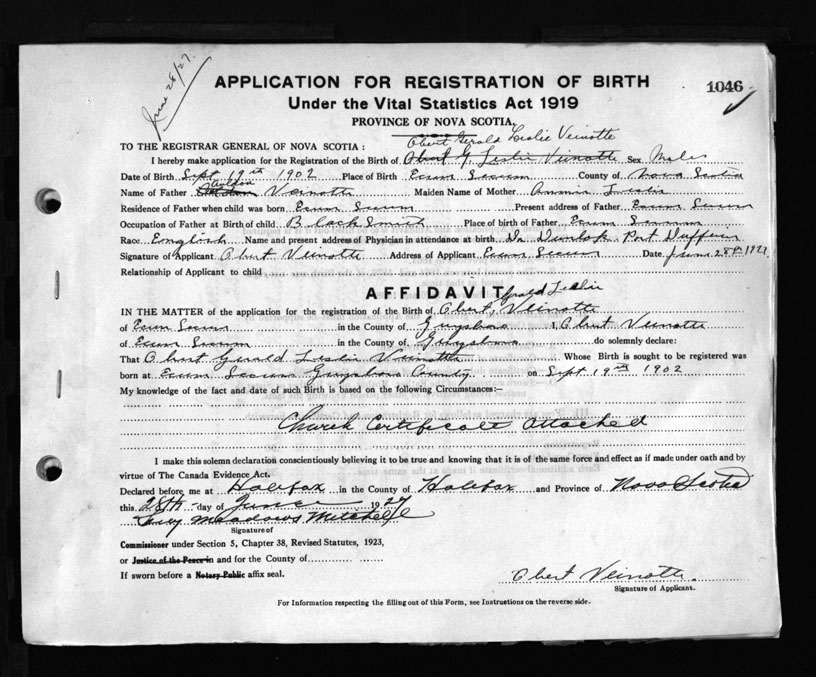 June 28/27.
APPLICATION FOR REGISTRATION OF BIRTH
1046
Under the Vital Statistics Act 1919
PROVINCE OF NOVA SCOTIA.
Obert Gerald Leslie Veinotte
TO THE REGISTRAR GENERAL OF NOVA SCOTIA :
I hereby make application for the Registration of the Birth of Obert G. Leslie Veinotte Sex Male
Date of Birth Sept 19th 1902 Place of Birth Ecum Secum County of Nova Scotia
Name of Father Veinotte Maiden Name of Mother Annie Leslie
Residence of Father when child was born Ecum Secum Present address of Father Ecum Secum
Occupation of Father at Birth of child Black Smith Place of birth of Father Ecum Secum
Race English Name and present address of Physician in attendance at birth Dr Dunlop Port Dufferin
Signature of Applicant Obert Veinotte Address of Applicant Ecum Secum Date June 28th 1927
Relationship of Applicant to child
AFFIDAVIT
Gerald Leslie
IN THE MATTER of the application for the registration of the Birth of Obert, Veinotte
of Ecum Secum in the County of Guysboro I, Obert Veinotte
of Ecum Secum in the County of Guysboro do solemnly declare:
That Obert Gerald Leslie Veinotte Whose Birth is sought to be registered was
born at Ecum Secum Guysboro County on Sept 19th 1902
My knowledge of the fact and date of such Birth is based on the following Circumstances:—
Church Certificate attached
I make this solemn declaration conscientiously believing it to be true and knowing that it is of the same force and effect as if made under oath and by
virtue of The Canada Evidence Act.
Declared before me at Halifax in the County of Halifax and Province of Nova Scotia
this 28th day of June 1927
Meadows Mitchell
Signature of
Commissioner under Section 5, Chapter 38, Revised Statutes, 1923,
or Justice of the Peace in and for the County of
If sworn before a Notary Public affix seal.
Obert Veinotte
Signature of Applicant.
For Information respecting the filling out of this Form, see Instructions on the reverse side.